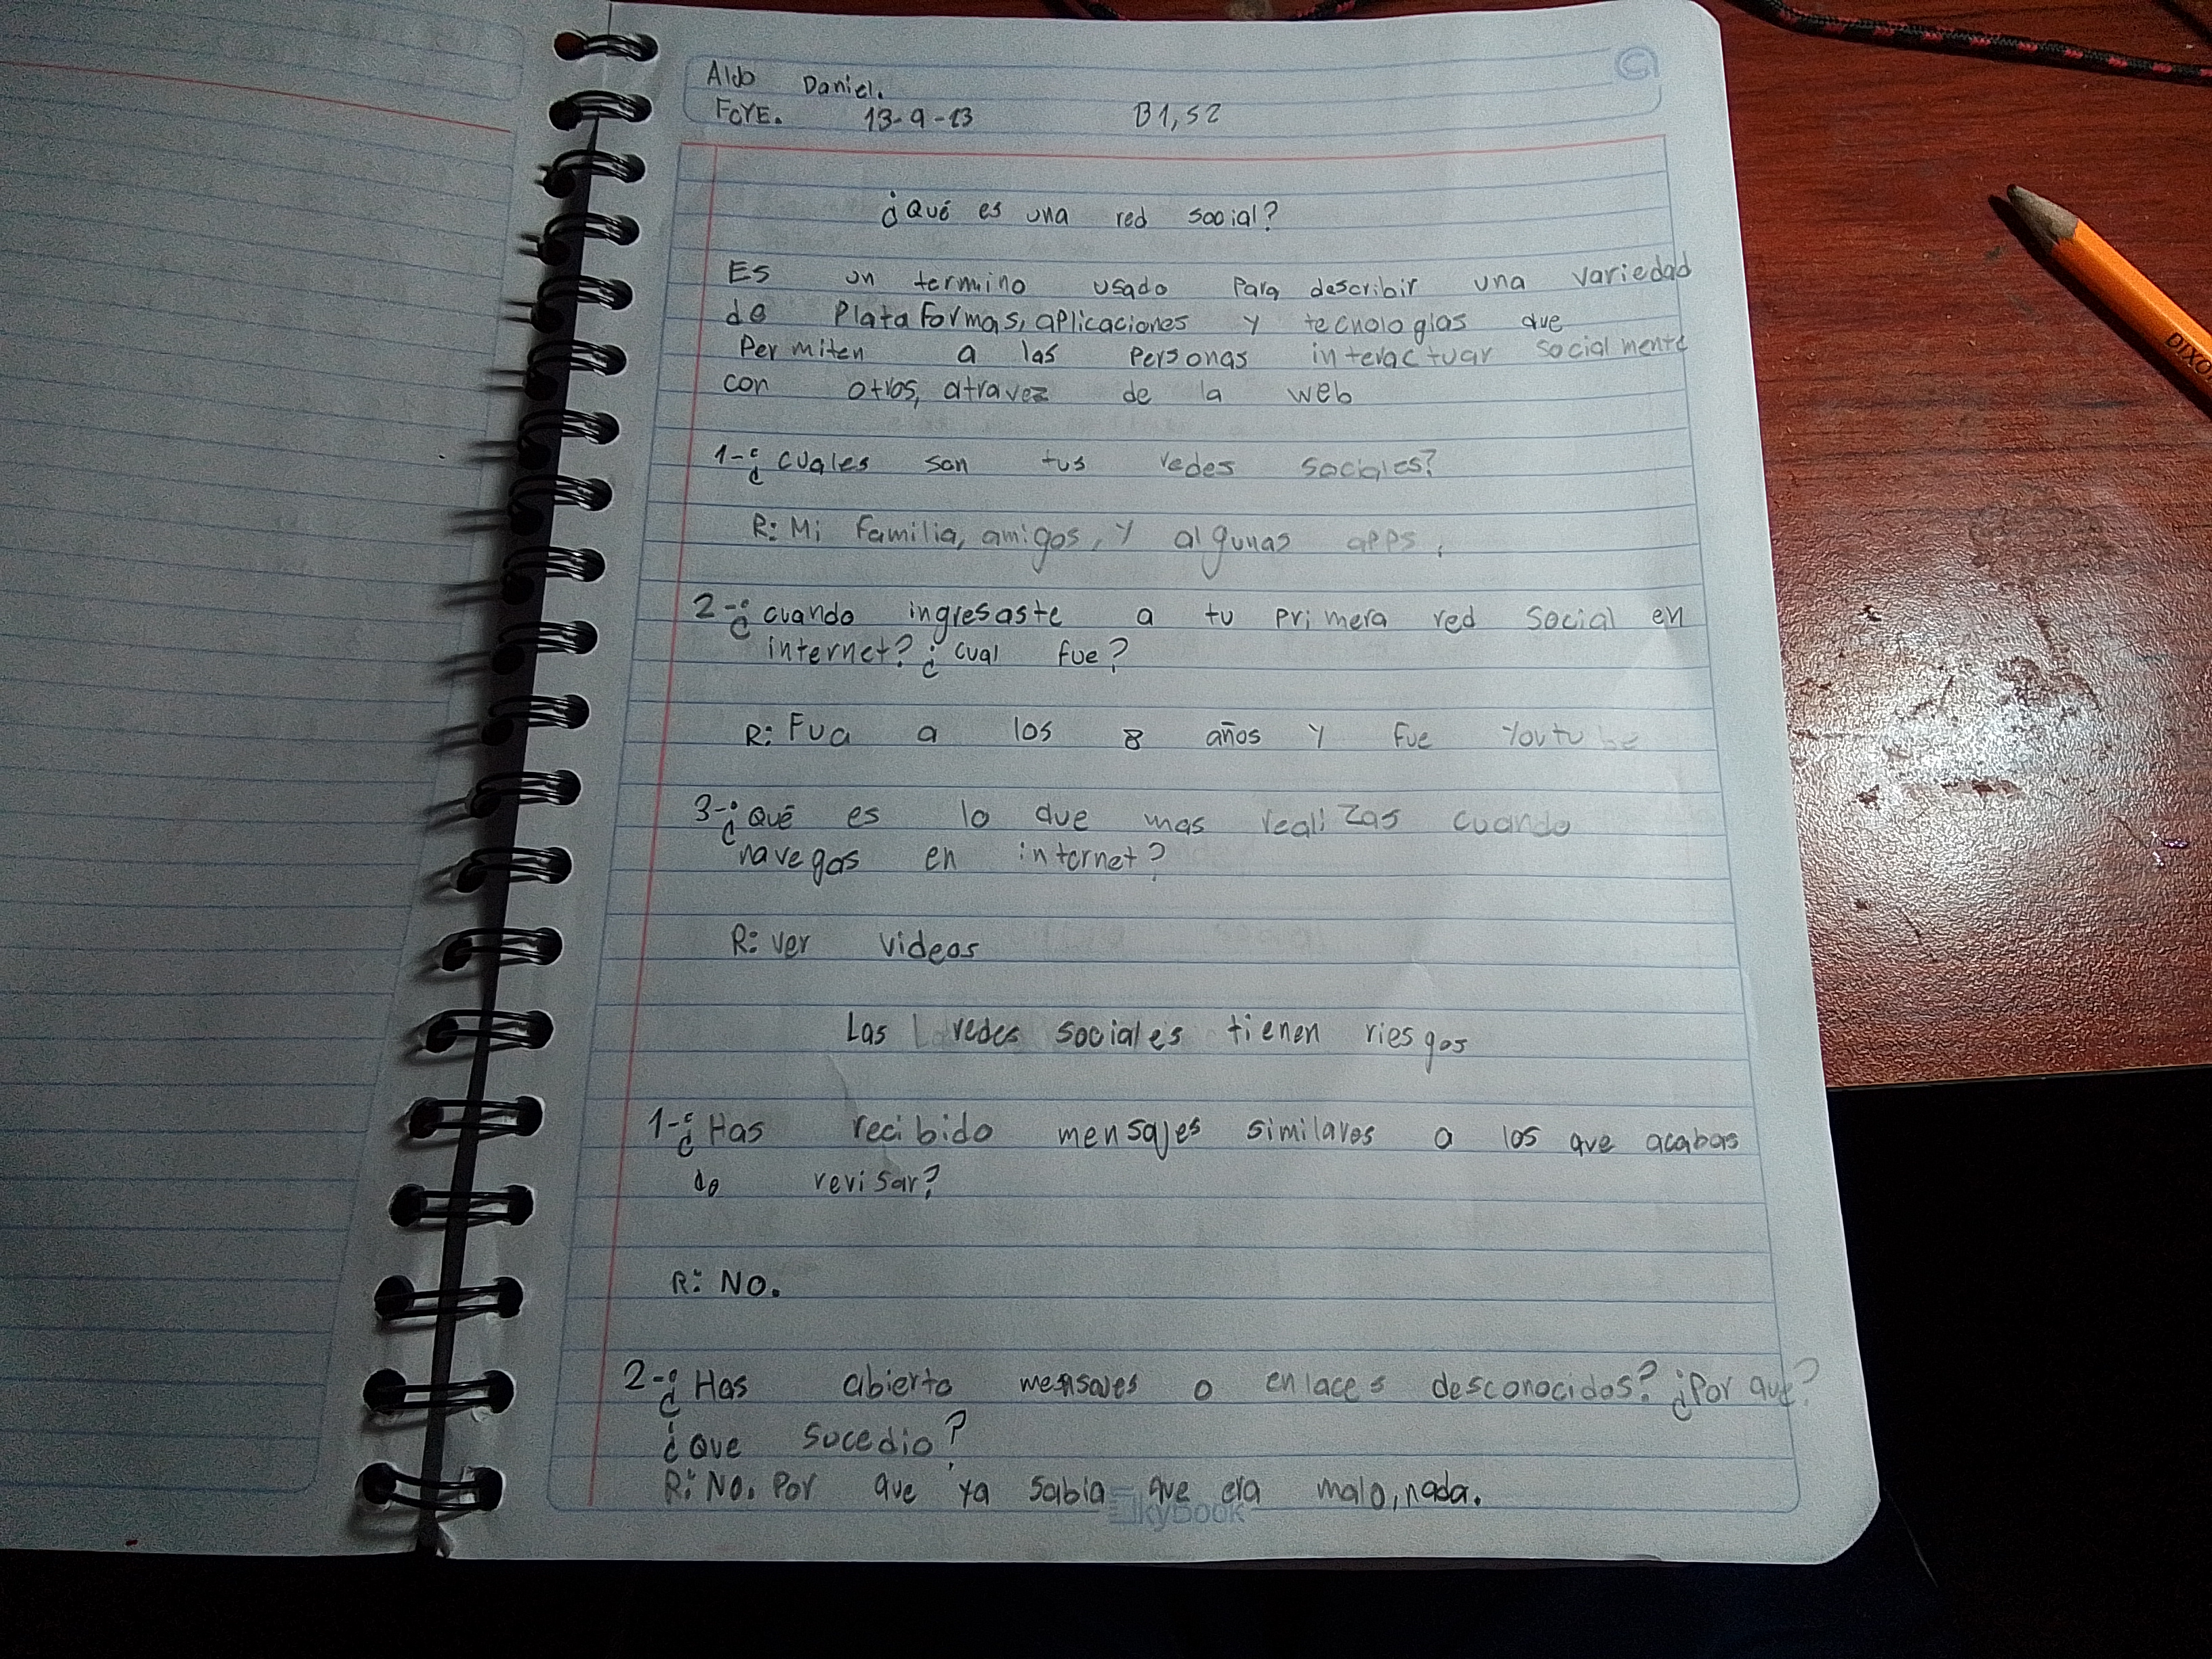 Aldo Daniel.
FCYE. 13-9-23 B1, S2
¿Qué es una red social?
Es un termino usado Para describir una variedad
de Plataformas, aplicaciones y tecnologias que
Permiten a las Personas interactuar socialmente
con otros, atravez de la web
1-¿cuales son tus redes sociales?
R: Mi familia, amigos, y algunas apps.
2-¿cuando ingresaste a tu primera red social en
internet? ¿cual fue?
R: Fua a los 8 años y fue Youtube
3-¿Qué es lo que mas realizas cuando
navegas en internet?
R: ver videos
Las redes sociales tienen riesgos
1-¿Has recibido mensajes similares a los que acabas
de revisar?
R: No.
2-¿Has abierto mensajes o enlaces desconocidos? ¿Por qué?
¿Que sucedio?
R: No. Por que ya sabia que era malo, nada.
SkyBook
DIXO